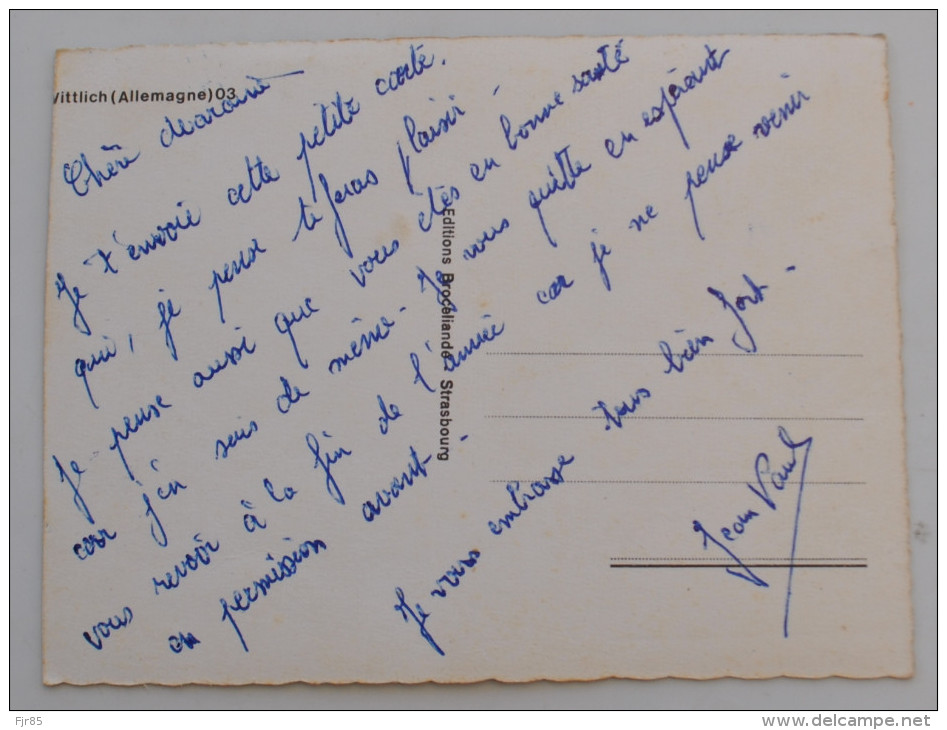 Wittlich (Allemagne) 03
Chère Marraine
Je t'envoie cette petite carte.
qui, je pense te feras plaisir -
Je pense aussi que vous êtes en bonne santé
car j'en suis de même - Je vous quitte en espérant
vous revoir à la fin de l'année car je ne peux venir
en permission avant -
Je vous embrasse tous bien fort -
Jean Paul
Editions Brocéliande - Strasbourg
Fjr85
www.delcampe.net